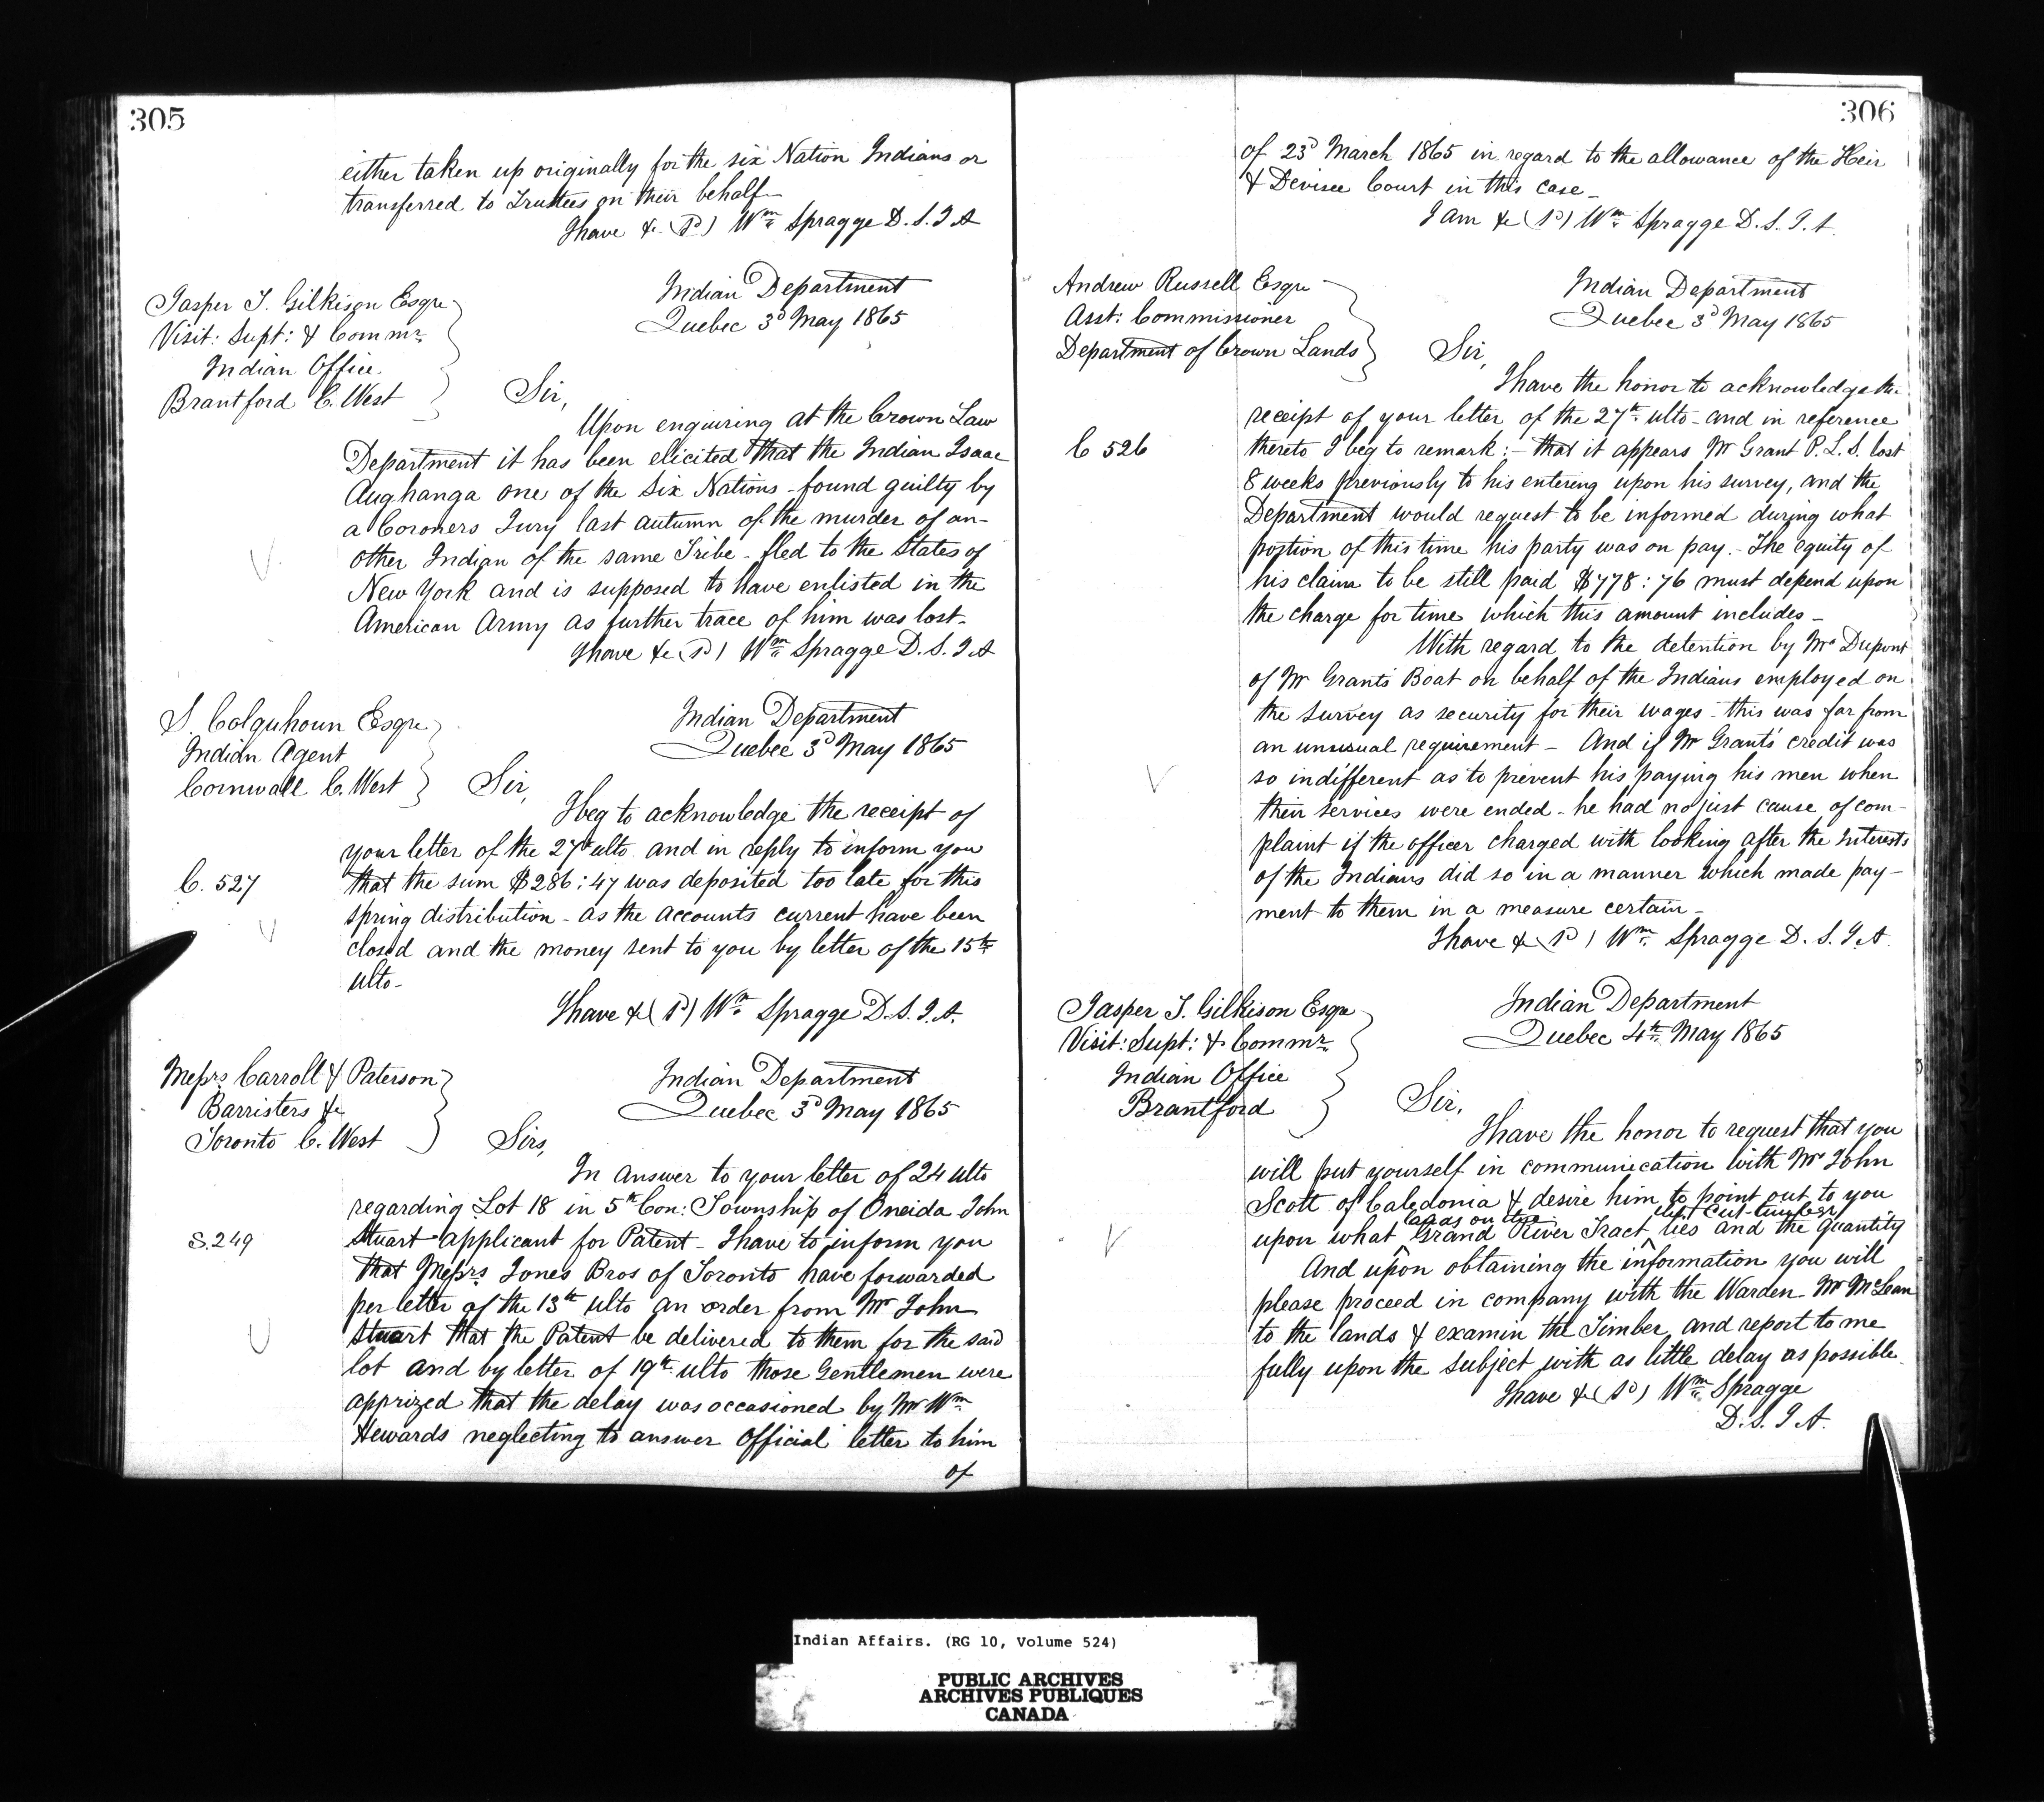 305
either taken up originally for the six Nation Indians or
transferred to Trustees on their behalf–
I have &c (Sd) Wm Spragge D.S.I.A
Jasper T. Gilkison Esqre
Visit: Supt: & Commr
Indian Office
Brantford C. West
Indian Department
Quebec 3d May 1865
Sir,
Upon enquiring at the Crown Law
Department it has been elicited that the Indian Isaac
Aughanga one of the Six Nations – found guilty by
a Coroners Jury last autumn of the murder of an-
other Indian of the same Tribe – fled to the States of
New York and is supposed to have enlisted in the
American Army as further trace of him was lost–
I have &c (Sd) Wm Spragge D.S.I.A
S. Colquhoun Esqre
Indian Agent
Cornwall C. West
Indian Department
Quebec 3d May 1865
Sir,
I beg to acknowledge the receipt of
your letter of the 27th ulto and in reply to inform you
C. 527
that the sum $286:47 was deposited too late for this
spring distribution – as the accounts current have been
closed and the money sent to you by letter of the 15th
ulto–
I have &c (Sd) Wm Spragge D.S.I.A.
Messrs Carroll & Paterson
Barristers &c
Toronto C. West
Indian Department
Quebec 3d May 1865
Sirs,
In answer to your letter of 24 ulto
regarding Lot 18 in 5th Con: Township of Oneida John
S.249
Stuart applicant for Patent – I have to inform you
that Messrs Jones Bros of Toronto have forwarded
per letter of the 13th ulto an order from Mr John
Stuart that the Patent be delivered to them for the said
lot and by letter of 19th ulto those Gentlemen were
apprized that the delay was occasioned by Mr Wm
Hewards neglecting to answer Official letter to him
of
306
of 23d March 1865 in regard to the allowance of the Heir
& Devisee Court in this case–
I am &c (Sd) Wm Spragge D.S.I.A.
Andrew Russell Esqre
Asst: Commissioner
Department of Crown Lands
Indian Department
Quebec 3d May 1865
Sir,
I have the honor to acknowledge the
receipt of your letter of the 27th ulto – and in reference
C 526
thereto I beg to remark:– that it appears Mr Grant P.L.S. lost
8 weeks previously to his entering upon his survey, and the
Department would request to be informed during what
portion of this time his party was on pay.– The equity of
his claim to be still paid $778:76 must depend upon
the charge for time which this amount includes–
With regard to the detention by Mr Dupont
of Mr Grant's Boat on behalf of the Indians employed on
the survey as security for their wages – this was far from
an unusual requirement – And if Mr Grant's credit was
so indifferent as to prevent his paying his men when
their services were ended – he had no just cause of com-
plaint if the officer charged with looking after the Interests
of the Indians did so in a manner which made pay-
ment to them in a measure certain–
I have &c (Sd) Wm Spragge D.S.I.A.
Jasper T. Gilkison Esqre
Visit: Supt: & Commr
Indian Office
Brantford
Indian Department
Quebec 4th May 1865
Sir,
I have the honor to request that you
will put yourself in communication with Mr John
Scott of Caledonia & desire him to point out to you
lands on the cut timber
upon what Grand River Tract lies and the quantity
And upon obtaining the information you will
please proceed in company with the Warden Mr McLean
to the lands & examin the Timber and report to me
fully upon the subject with as little delay as possible
I have &c (Sd) Wm Spragge
D.S.I.A.
Indian Affairs. (RG 10, Volume 524)
PUBLIC ARCHIVES
ARCHIVES PUBLIQUES
CANADA